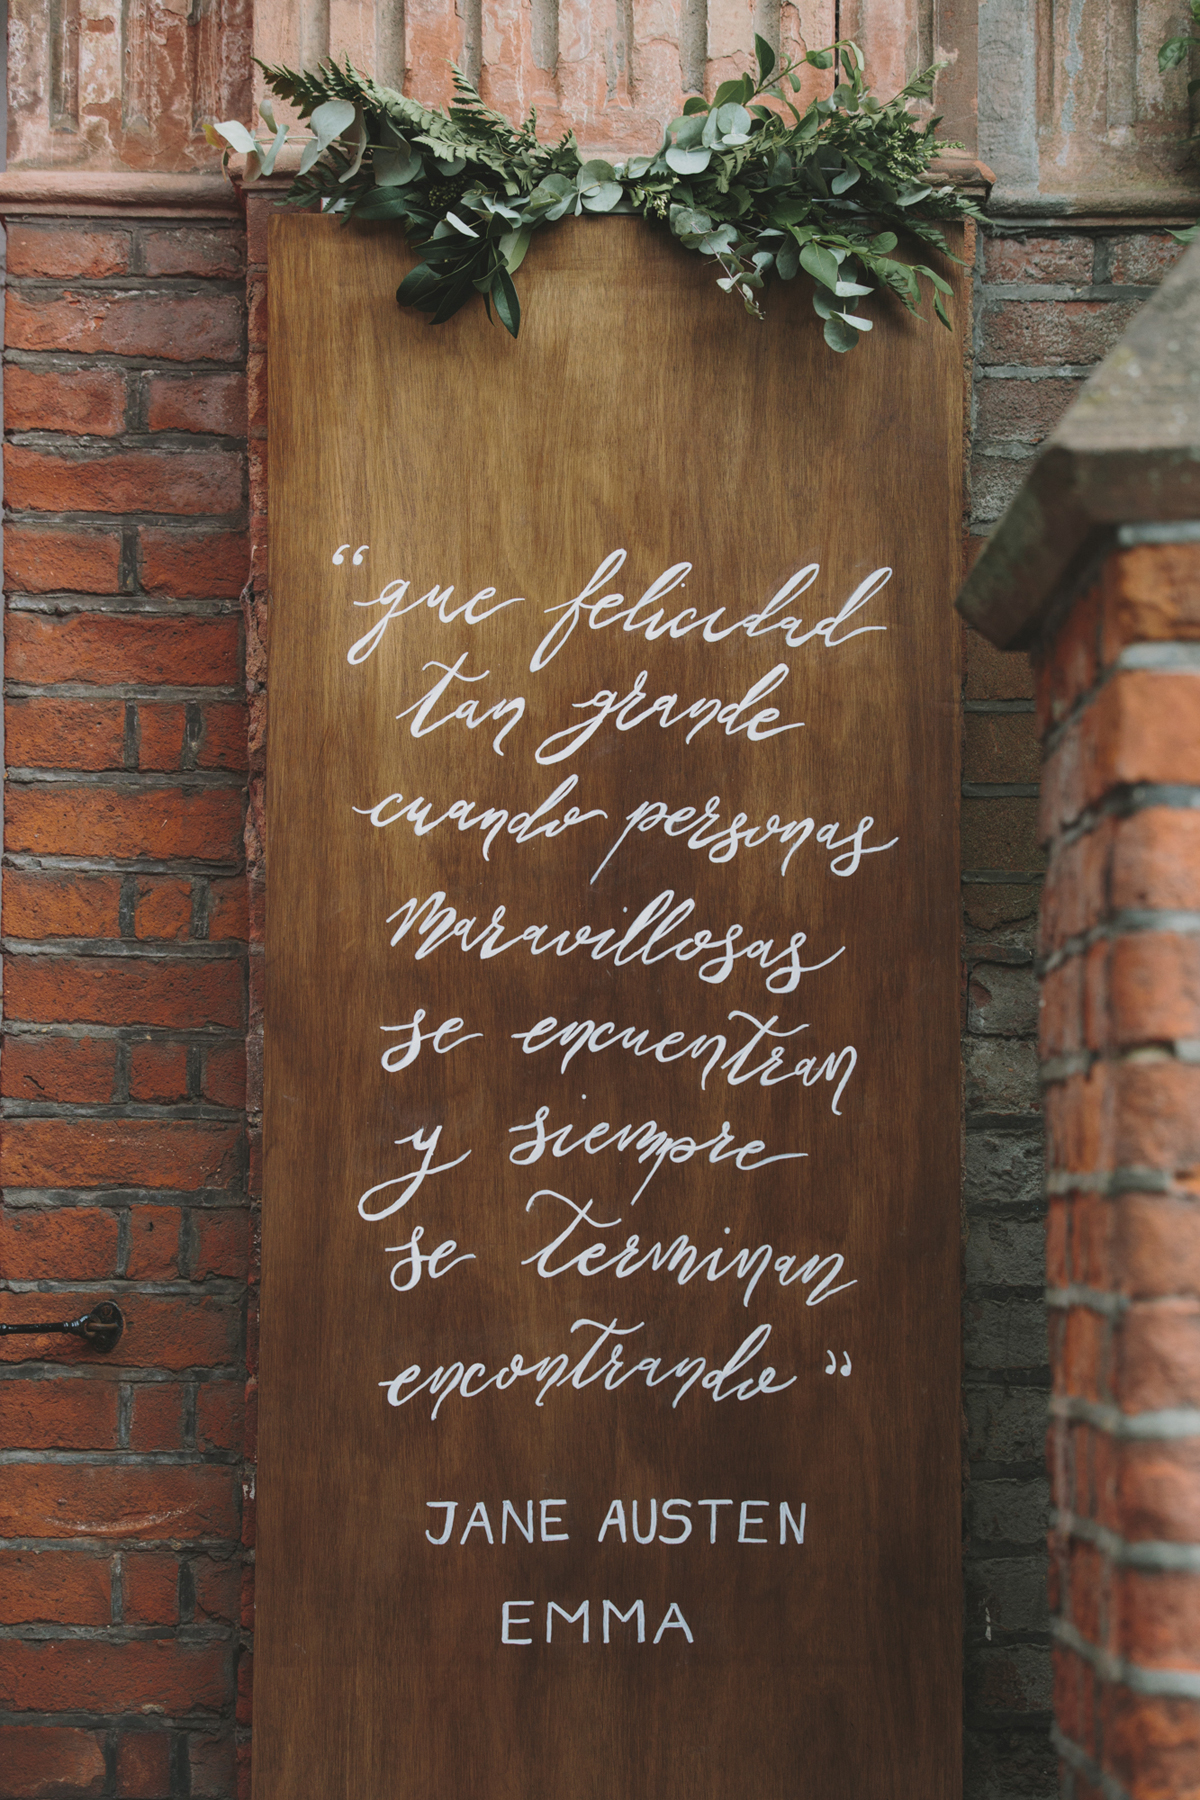 “que felicidad
tan grande
cuando personas
maravillosas
se encuentran
y siempre
se terminan
encontrando”
JANE AUSTEN
EMMA